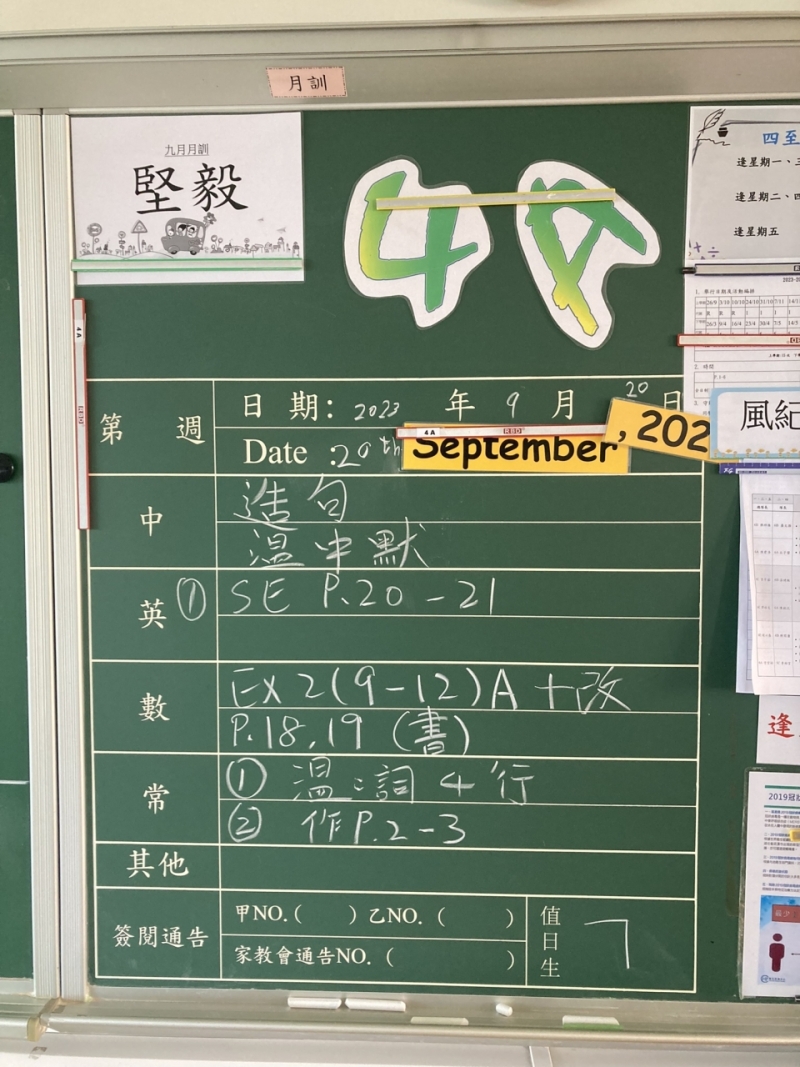 月訓
九月月訓
堅毅
4A
四至
逢星期一、三
逢星期二、四
逢星期五
4A
第 週
日 期: 2023 年 9 月 20 日
Date : 20th September, 202
4A
風紀
中
造句
溫中默
英
① SE P.20-21
數
EX 2(9-12)A +改
P.18,19 (書)
常
① 溫:詞 4行
② 作P.2-3
其他
簽閱通告
甲NO.( ) 乙NO. ( )
家教會通告NO. ( )
值日生
7
逢